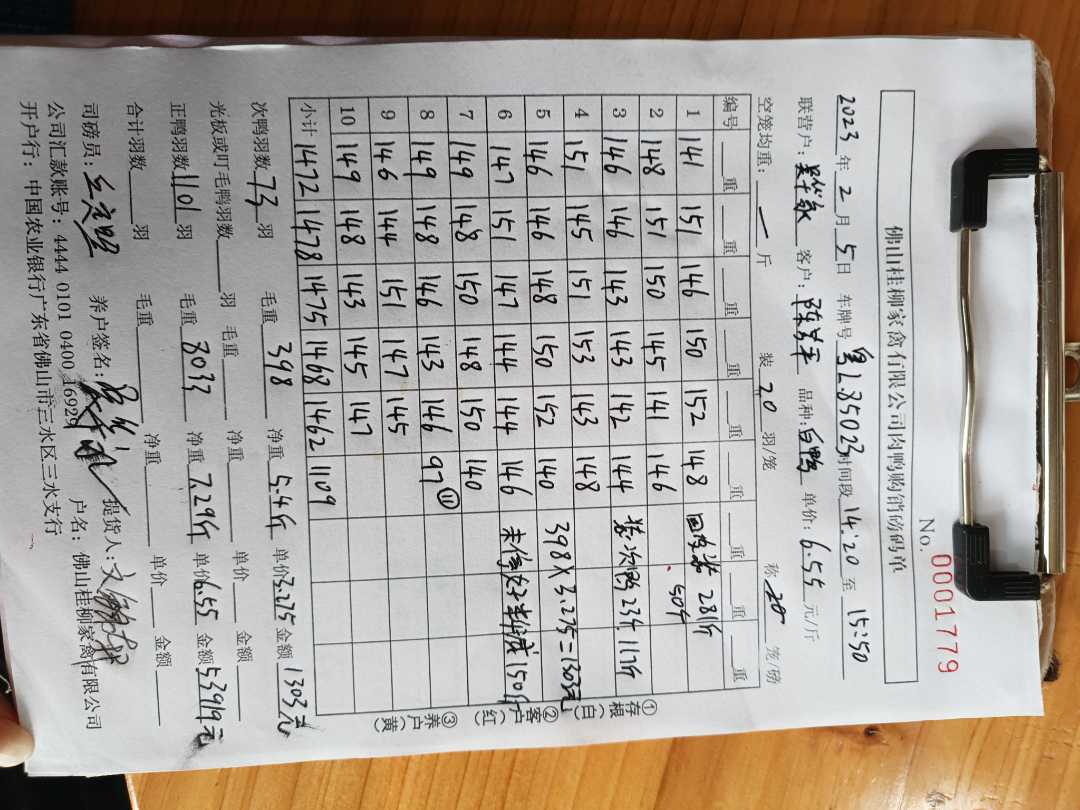 佛山桂柳家禽有限公司肉鸭购销磅码单
No. 0001779
2023 年 2 月 5 日 车牌号 粤L85023 时间段 14:20 至 15:50
联营户: 客户: 品种: 白鸭 单价: 6.55 元/斤
空笼均重: 一 斤 装 20 羽/笼 称 笼/磅
编号 重 重 重 重 重 重 重 重 重
1 141 151 146 150 152 148 回空笼 281斤
2 148 151 150 145 141 146 50个
3 146 146 143 143 142 144 装次鸭23个117斤
4 151 145 151 153 143 148
5 146 146 148 150 152 140 398×3.275=1303元
6 147 151 147 144 144 146 150斤
7 149 148 150 148 150 140
8 149 148 146 143 146 97⑪
9 146 144 151 147 145
10 149 148 143 145 147
小计 1472 1478 1475 1468 1462 1109
①存根(白) ②客户(红) ③养户(黄)
次鸭羽数 73 羽 毛重 398 净重 5.4斤 单价 3.275 金额 1303元
光板或叮毛鸭羽数 羽 毛重 净重 单价 金额
正鸭羽数 1101 羽 毛重 8033 净重 7.29斤 单价 6.55 金额 53919元
合计羽数 羽 毛重 净重 单价 金额
司磅员: 养户签名: 提货人:
公司汇款账号: 4444 0101 0400 16929 户名: 佛山桂柳家禽有限公司
开户行: 中国农业银行广东省佛山市三水区三水支行